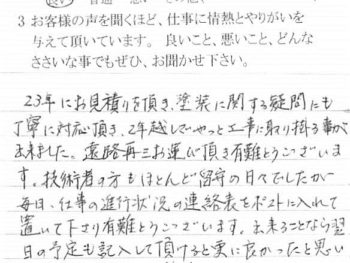 3 お客様の声を聞くほど、仕事に情熱とやりがいを
与えて頂いています。良いこと、悪いこと、どんな
ささいな事でもぜひ、お聞かせ下さい。
23年にお見積りを頂き、塗装に関する疑問にも
丁寧に対応頂き、2年越しでやっと工事に取り掛る事が
出来ました。遠路再三お運び頂き有難とうございま
す。技術者の方もほとんど留守の日々でしたが
毎日、仕事の進行状況の連絡表をポストに入れて
置いて下さり有難とうございます。出来ることなら翌
日の予定も記入して頂けると更に良かったと思い